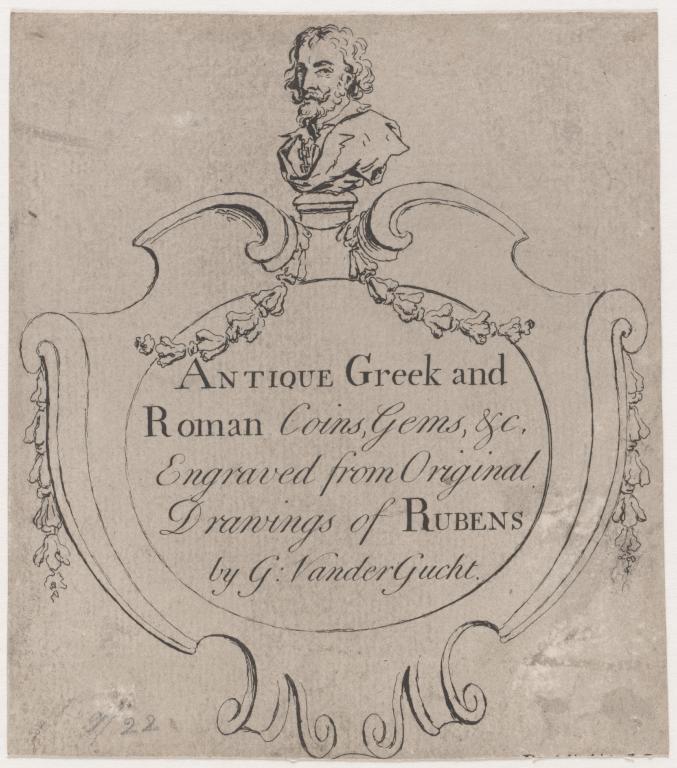 ANTIQUE Greek and
Roman Coins, Gems, &c,
Engraved from Original
Drawings of RUBENS
by G: VanderGucht.